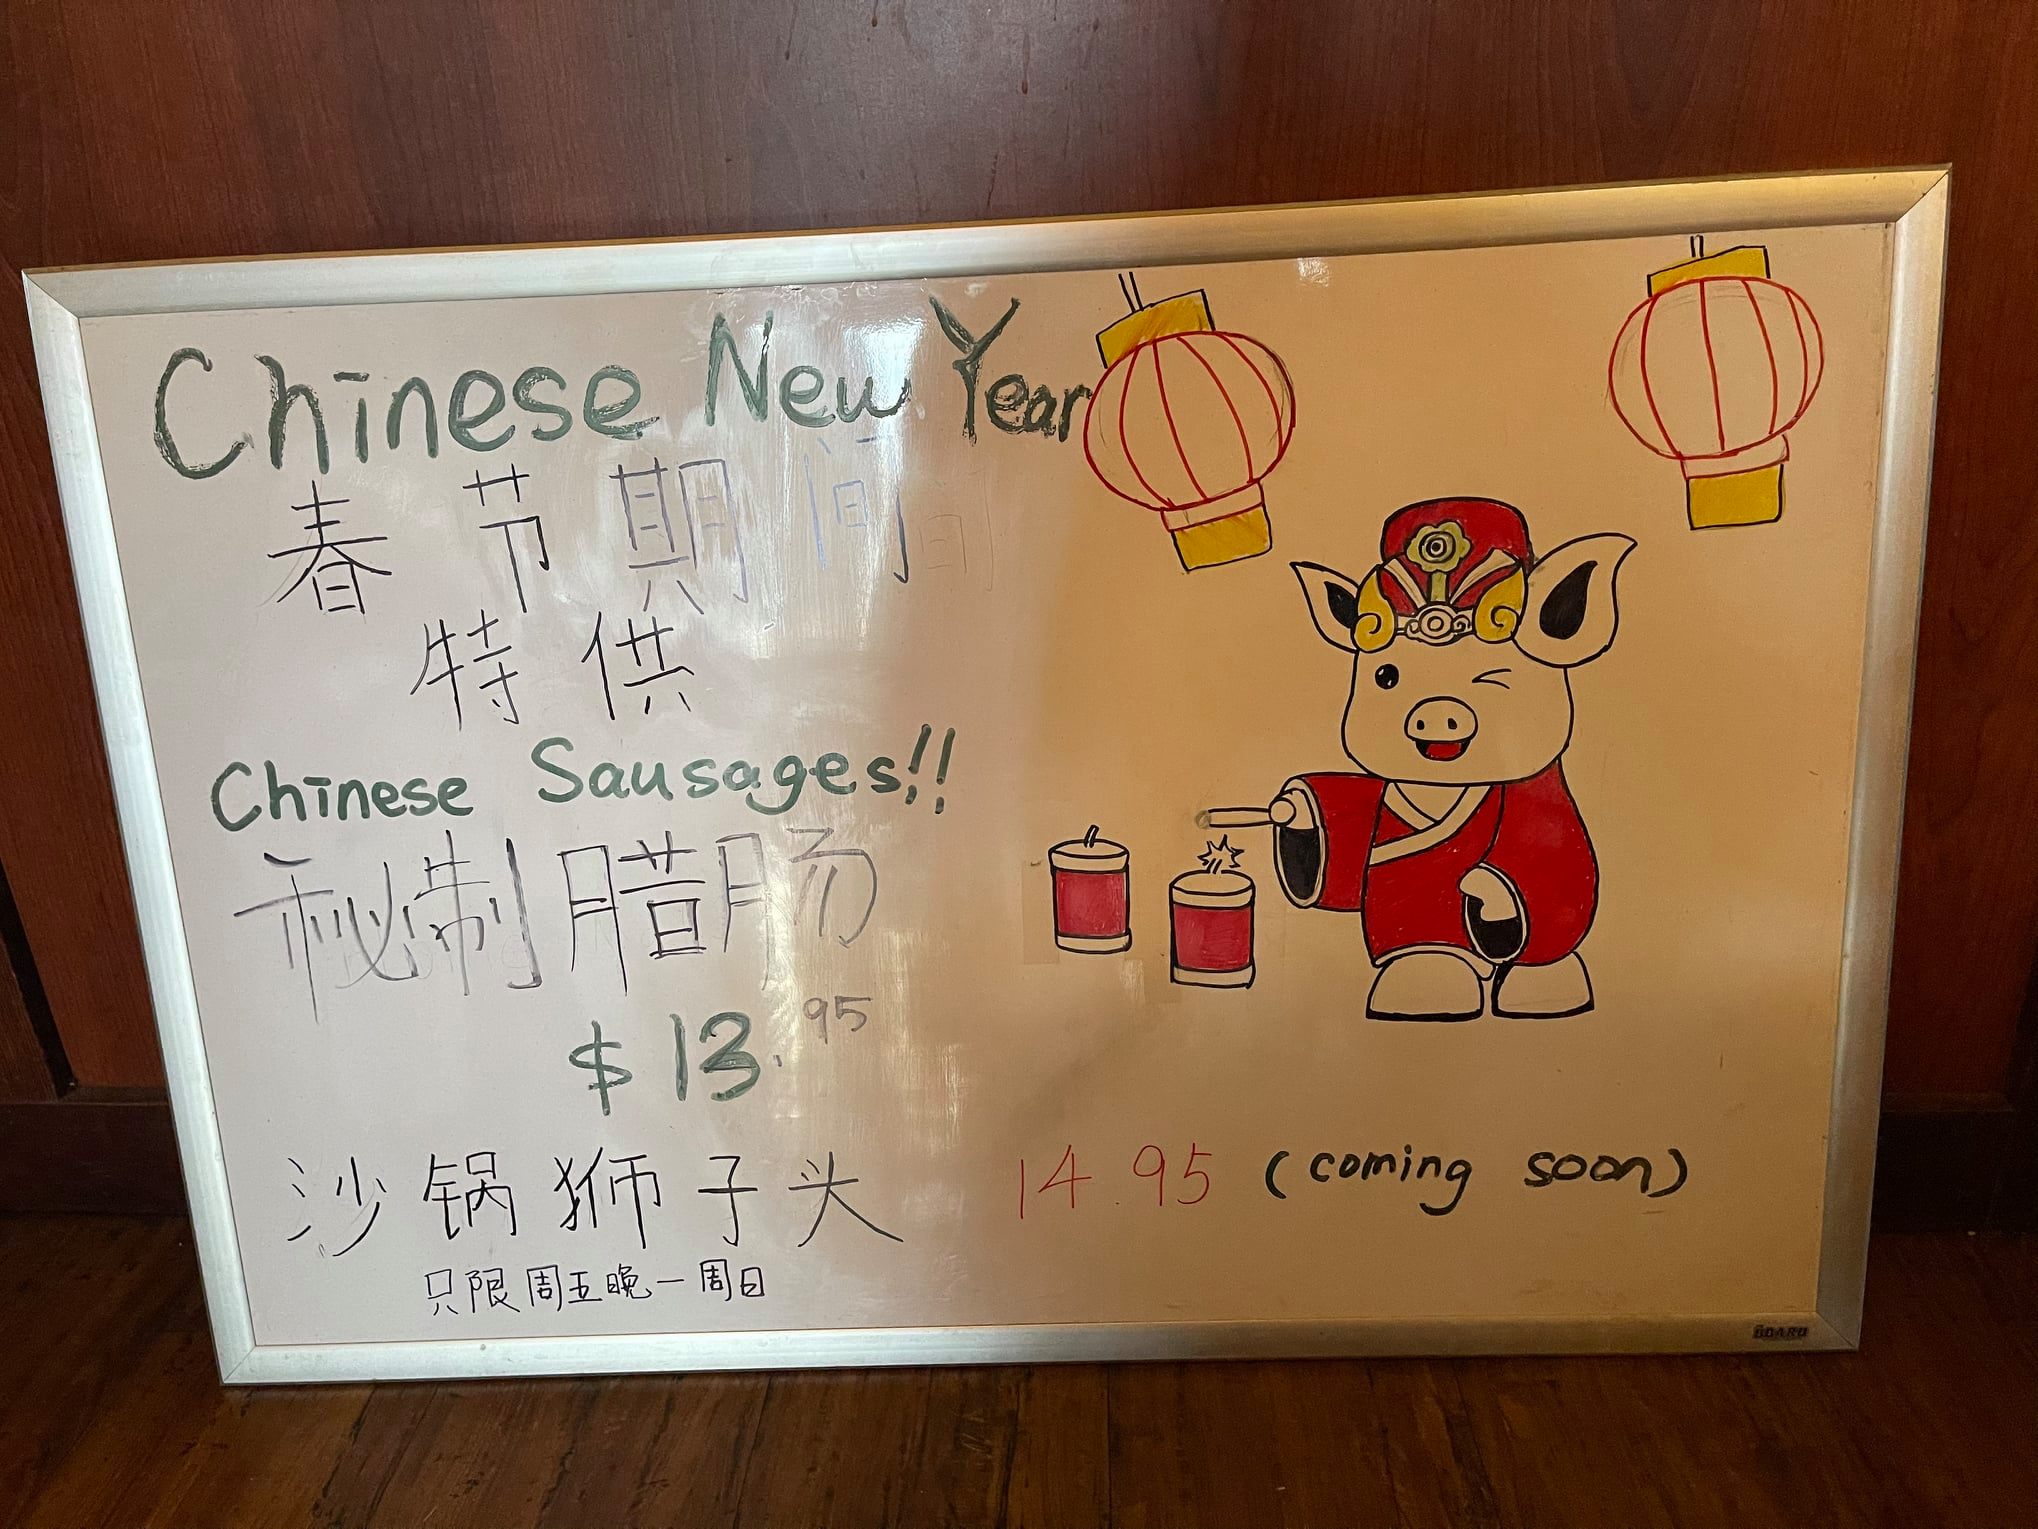 Chinese New Year
春节期间
特供
Chinese Sausages!!
秘制腊肠
$13.95
沙锅狮子头 14.95 (coming soon)
只限周五晚一周日
BOARD